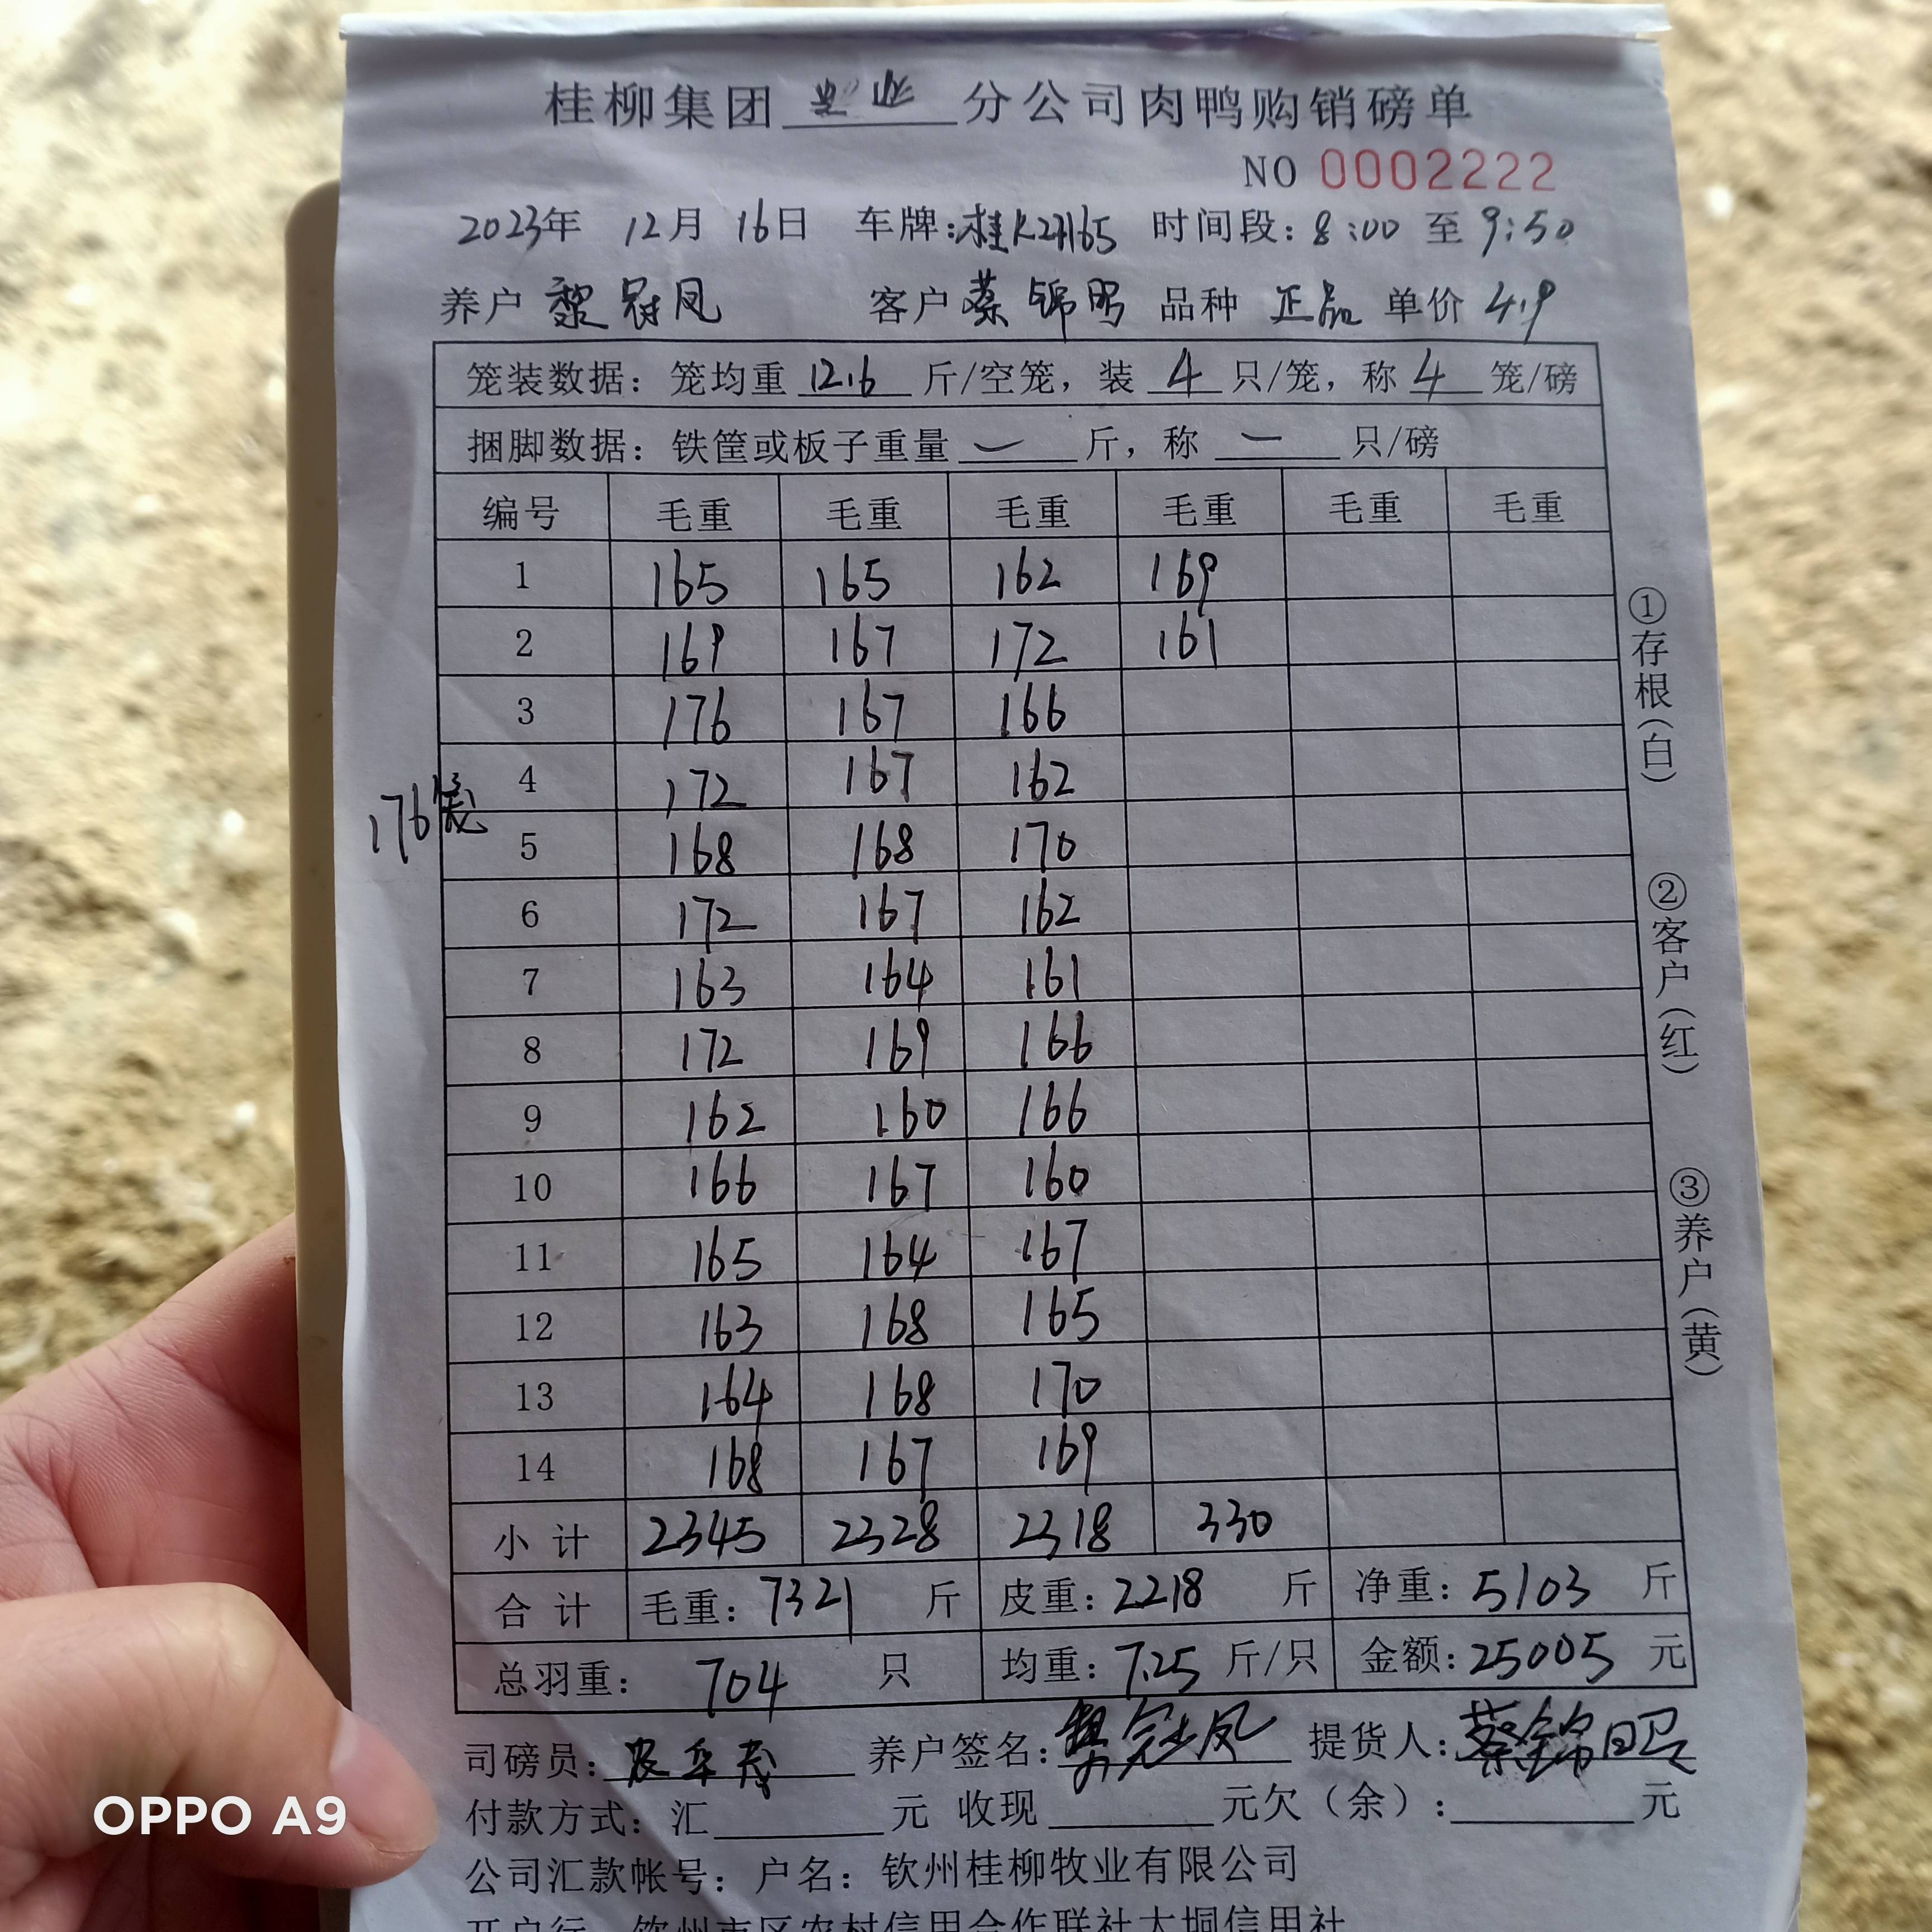 桂柳集团 分公司肉鸭购销磅单
NO 0002222
2023年 12月 16日 车牌: 时间段: 8:00 至 9:50
养户 黎冠凤 客户 蔡锦昭 品种 正品 单价 4.9
笼装数据: 笼均重 12.6 斤/空笼, 装 4 只/笼, 称 4 笼/磅
捆脚数据: 铁筐或板子重量 — 斤, 称 — 只/磅
编号 毛重 毛重 毛重 毛重 毛重 毛重
1 165 165 162 169
2 169 167 172 161
3 176 167 166
4 172 167 162
176笼
5 168 168 170
6 172 167 162
7 163 164 161
8 172 169 166
9 162 160 166
10 166 167 160
11 165 164 167
12 163 168 165
13 164 168 170
14 168 167 169
小计 2345 2328 2318 330
合计 毛重: 7321 斤 皮重: 2218 斤 净重: 5103 斤
总羽重: 704 只 均重: 7.25 斤/只 金额: 25005 元
司磅员: 养户签名: 黎冠凤 提货人: 蔡锦昭
付款方式: 汇 元 收现 元欠(余): 元
公司汇款帐号: 户名: 钦州桂柳牧业有限公司
开户行 钦州市区农村信用合作联社大垌信用社
①存根(白)
②客户(红)
③养户(黄)
OPPO A9